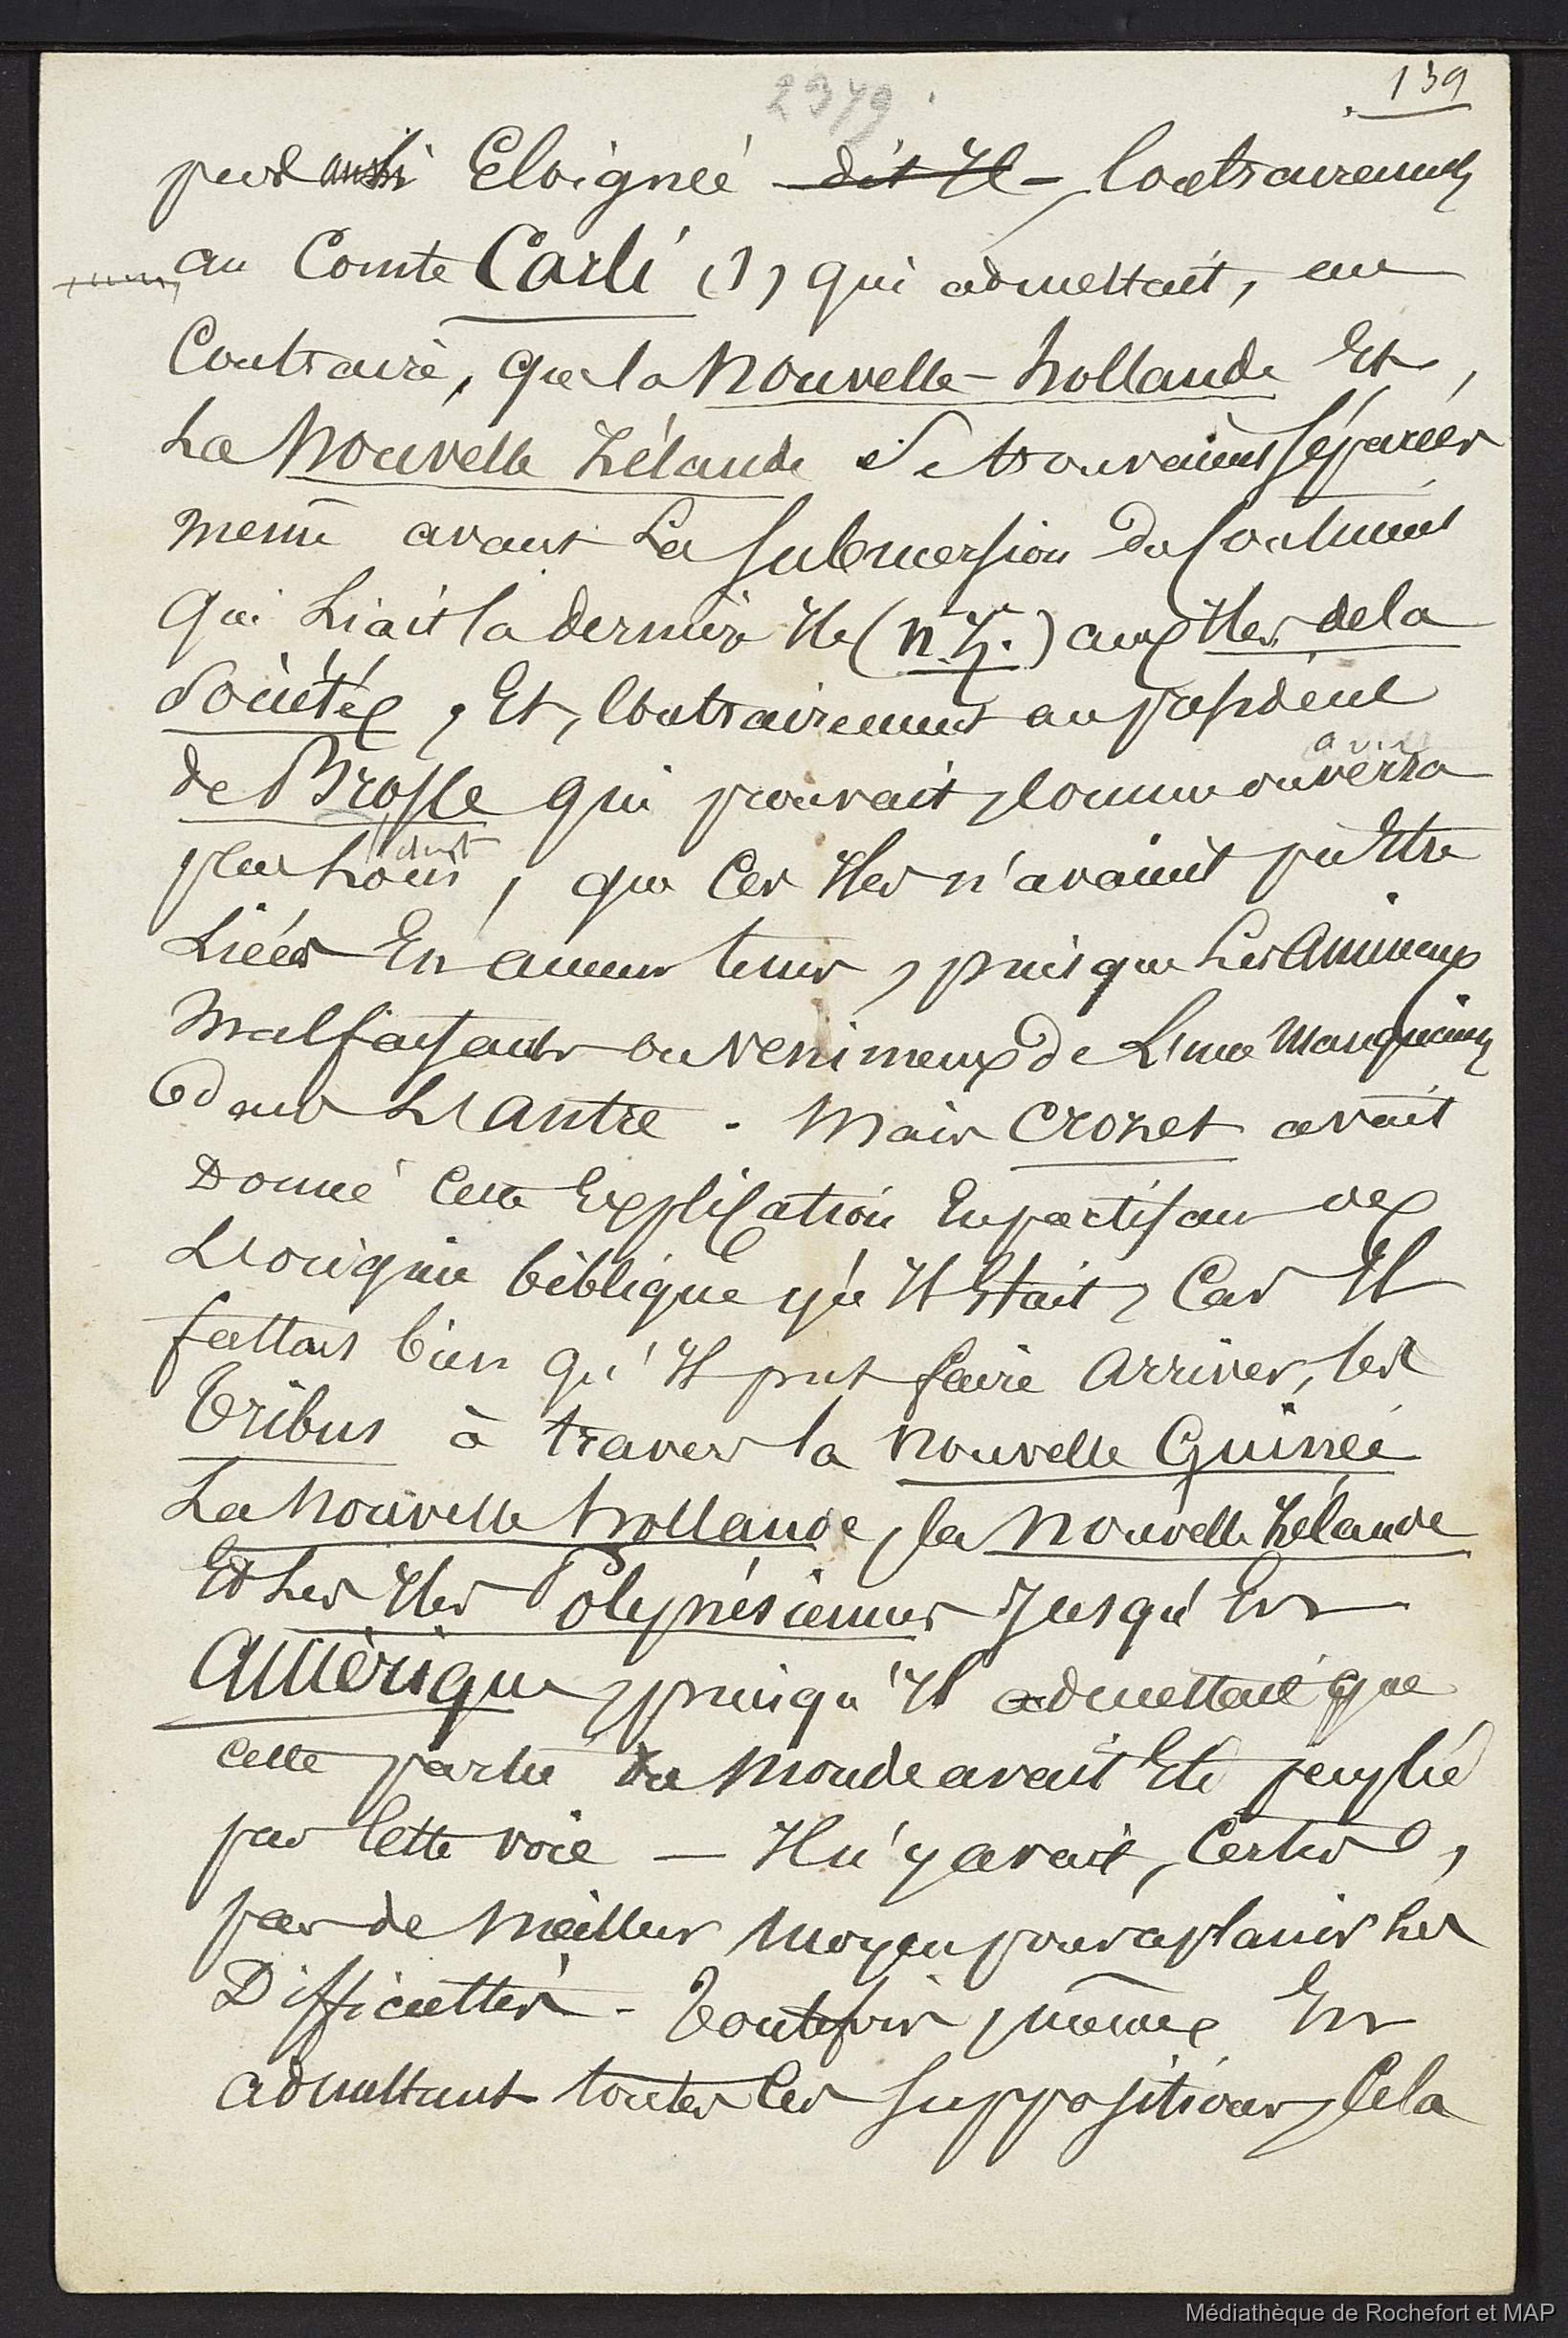 139
2379
peu aussi Eloignée dit Il - Contrairement
au Comte Carli (1) qui admettait, au
Contraire, que la Nouvelle-hollande Et
La Nouvelle Zélande Se trouvaient séparées
meme avant La submersion du Continent
qui Liait la derniére Ile (n.Z.) aux Iles de la
Société, Et, Contrairement au président
de Brosse qui pouvait, comme on verra
plus hout, que Ces Iles n'avaient pu Etre
Liées En aucun tems, puisque Les Animaux
Malfaisants ou venimeux de L'une Manquaient
dans L'Autre. Mais Crozet avait
Donné Cette Explication En partisan
L'origine biblique qu'Il Etait, Car Il
fallait bien qu'Il put faire Arriver, les
Tribus à travers la Nouvelle Guinée
La Nouvelle hollande, la Nouvelle Zélande
Et Les Iles Polynésiennes Jusqu'En
Amérique, puisqu'Il admettait que
cette partie du Monde avait Eté peuplée
par Cette voie — Il n'y avait, Certes,
pas de Meilleur Moyen pour aplanir Les
Difficultés - Toutefois, même En
admettant toutes Ces suppositions, Cela
Médiathèque de Rochefort et MAP